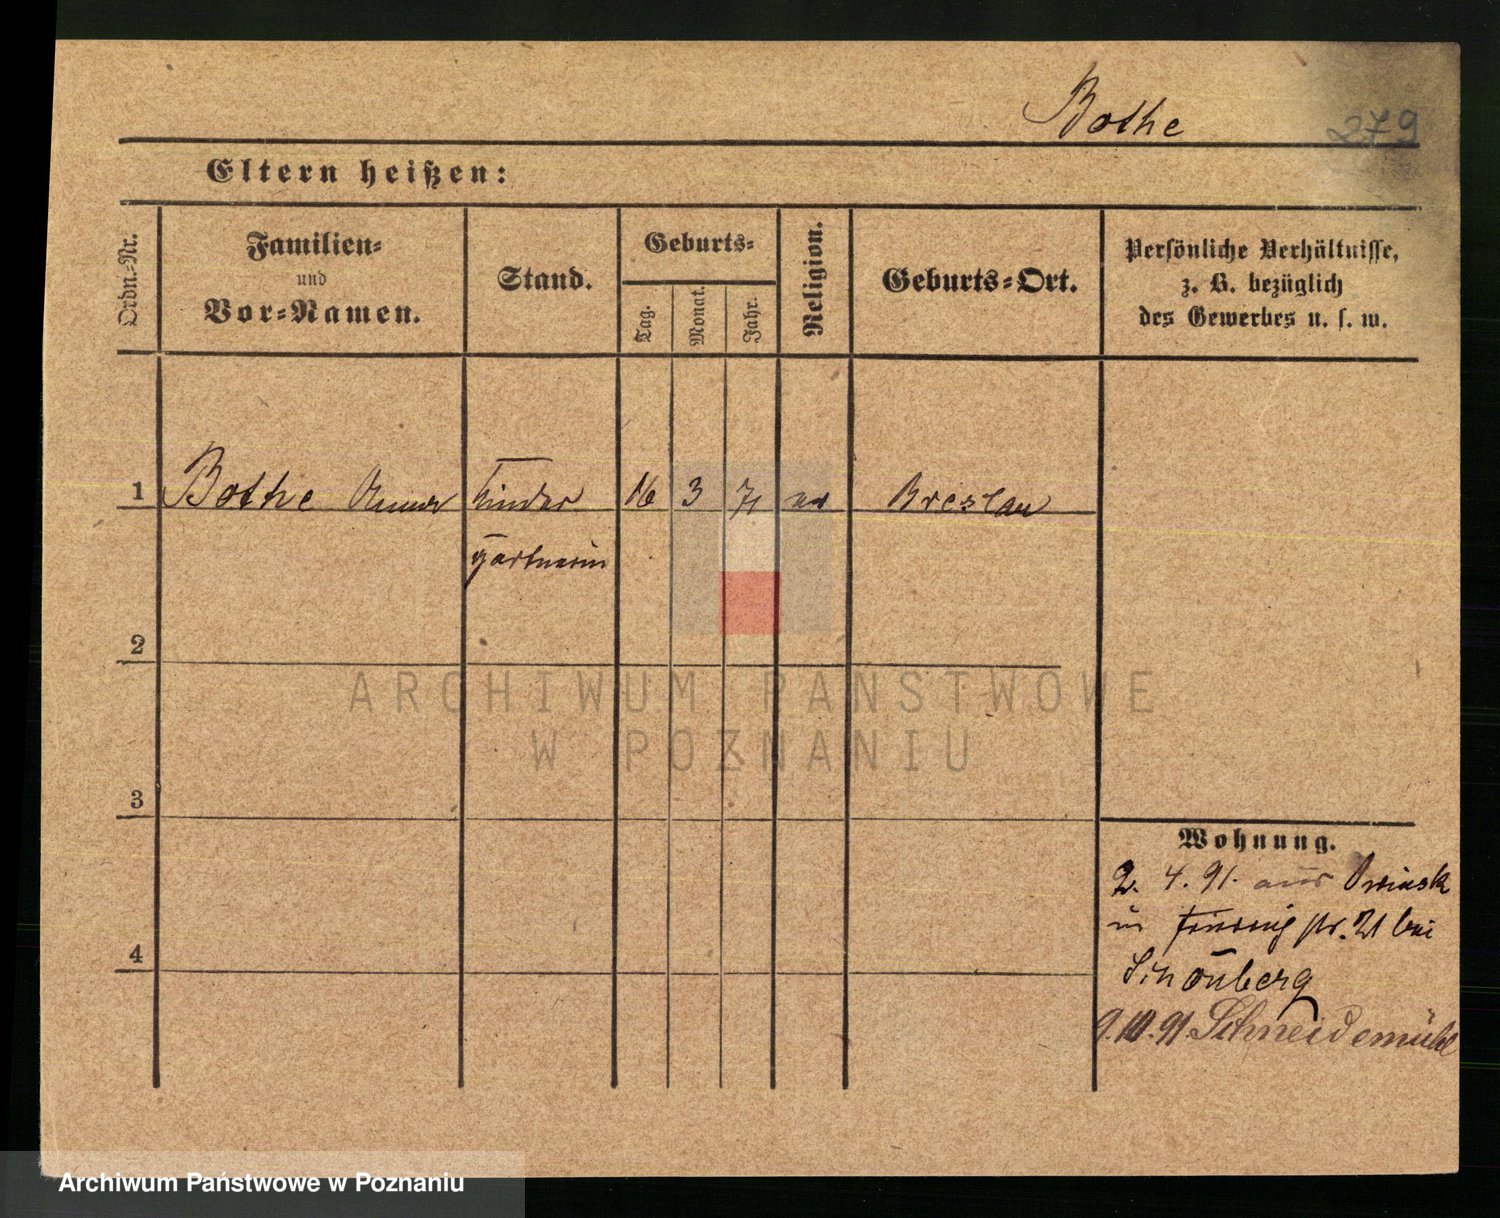 Bothe 279
Eltern heißen:
Ordn.-Nr.
Familien-
und
Vor-Namen.
Stand.
Geburts-
Tag.
Monat.
Jahr.
Religion.
Geburts-Ort.
Persönliche Verhältnisse,
z. B. bezüglich
des Gewerbes u. s. w.
1 Bothe Anna Kinder 16 3 71 ev Breslau
gärtnerin
2
ARCHIWUM PAŃSTWOWE
W POZNANIU
3
Wohnung.
2. 4. 91. aus Owinsk
in str. 21 bei
4
Schönberg
9.10.91. Schneidemühl
Archiwum Państwowe w Poznaniu